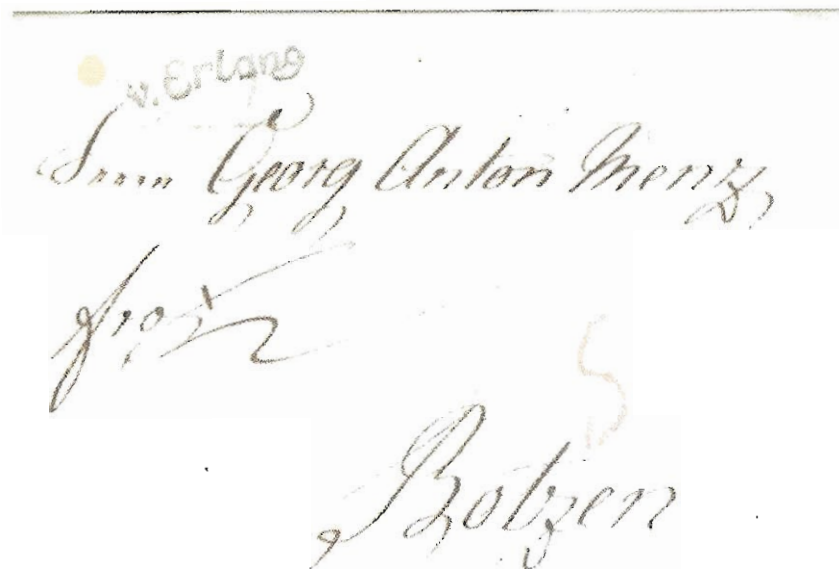 v. Erlang
Herrn Georg Anton Menz
frco
5
Botzen